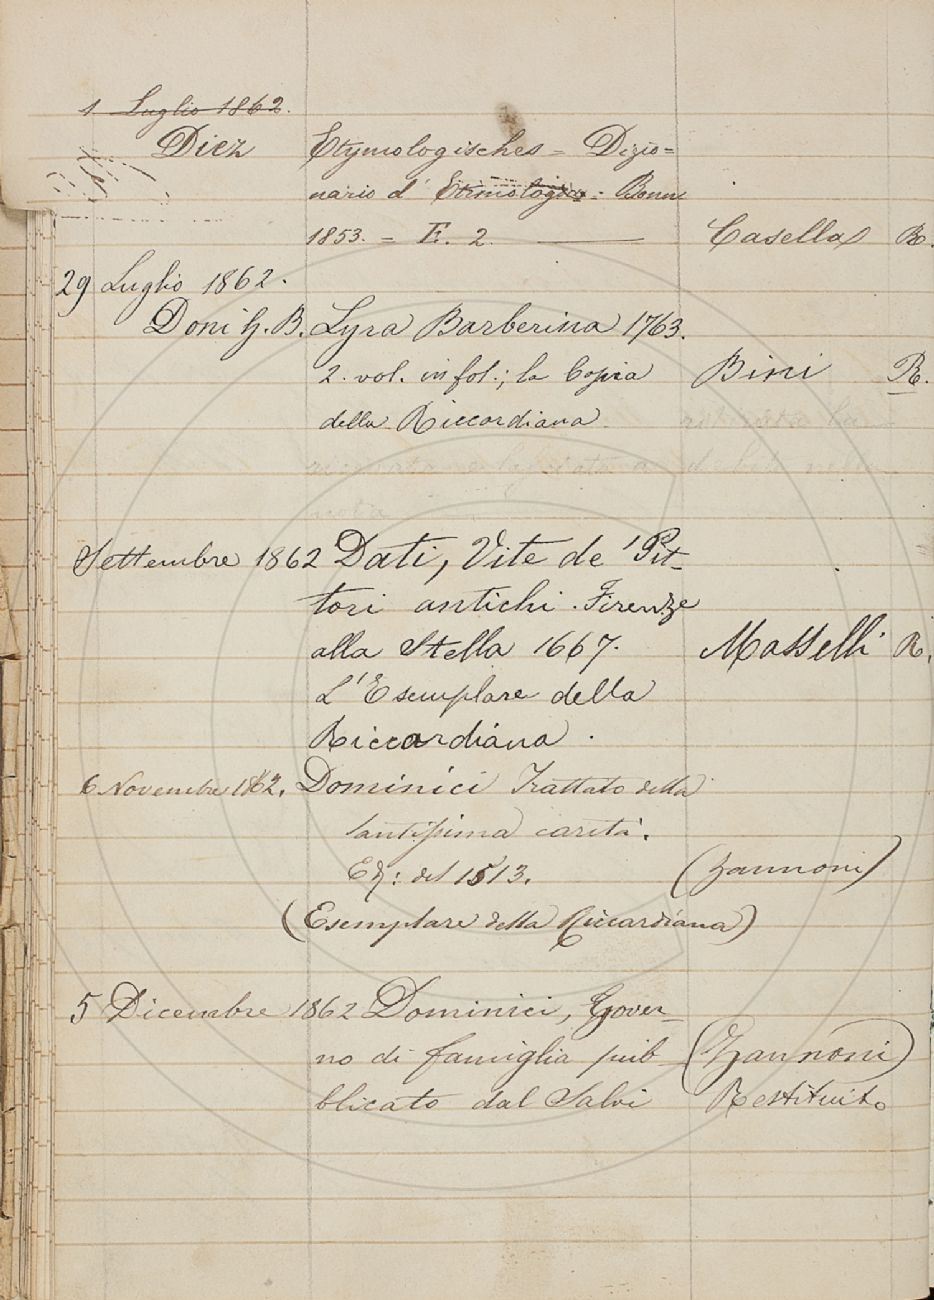 1 Luglio 1862.
Diez Etymologisches = Dizio=
nario d' Etimologico = Bonn
1853. = E. 2. Casella R.
29 Luglio 1862.
Doni G. B. Lyra Barberina 1763.
2. vol. in fol.; la Copia Bini R.
della Riccardiana.
Settembre 1862 Dati, Vite de' Pit-
tori antichi. Firenze
alla Stella 1667. Masselli R.
L'Esemplare della
Riccardiana.
6 Novembre 1862. Dominici Trattato della
santissima carità.
Ediz: del 1513. (Zannoni)
(Esemplare della Riccardiana)
5 Dicembre 1862 Dominici, Gover-
no di famiglia pub (Zannoni)
blicato dal Salvi Restituito